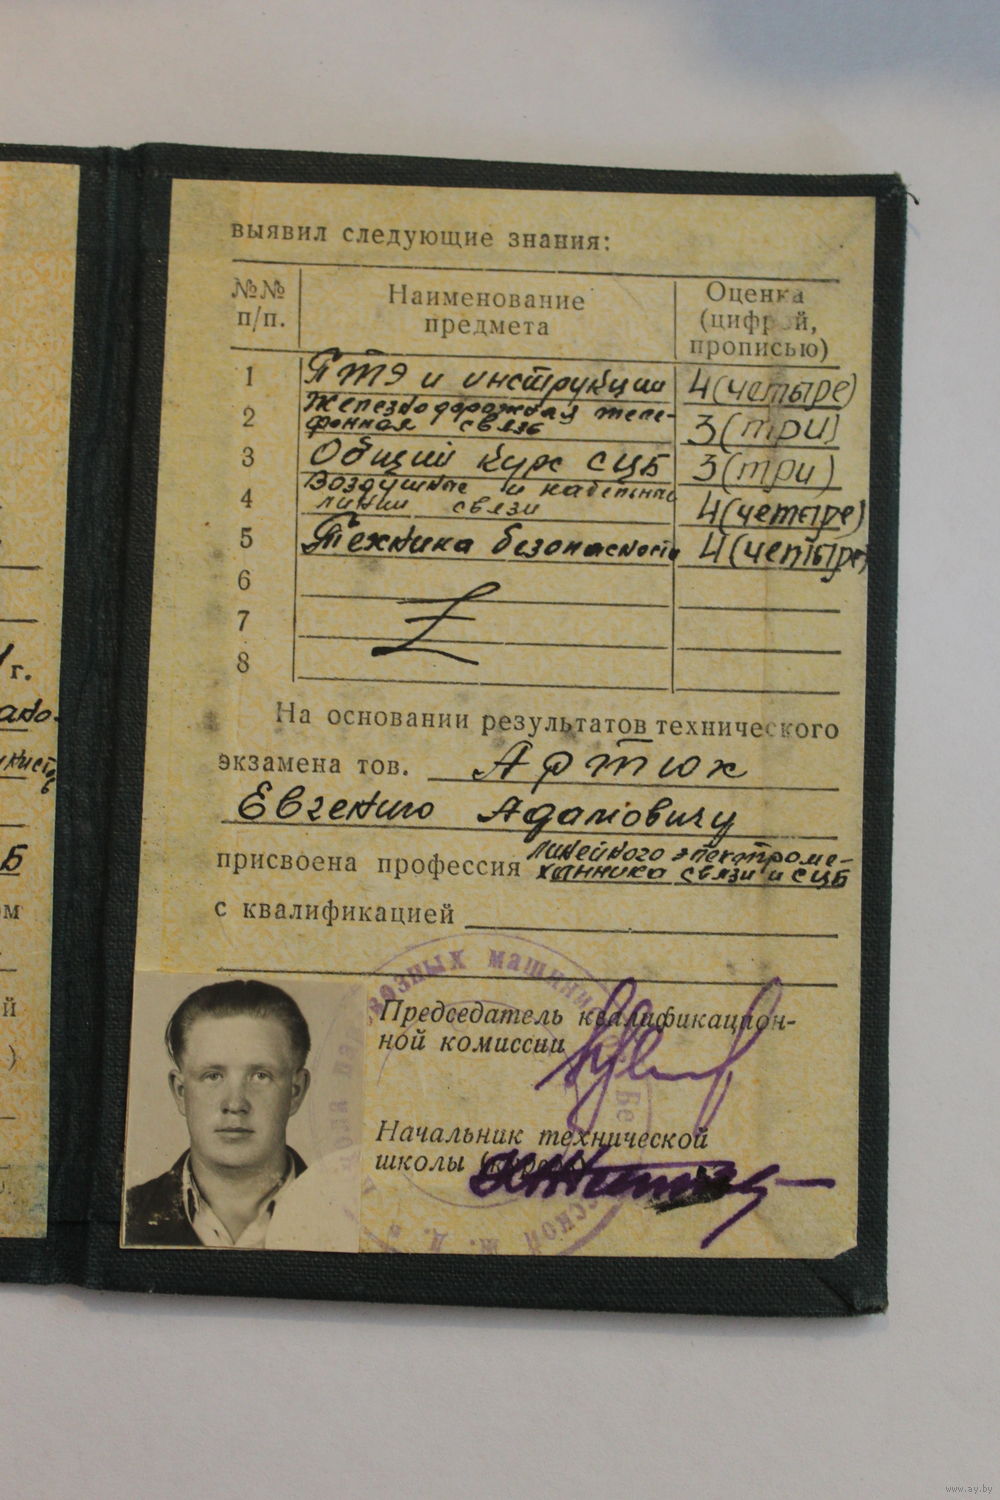 выявил следующие знания:
№№ п/п.
Наименование предмета
Оценка (цифрой, прописью)
1 ПТЭ и инструкции 4 (четыре)
2 Железнодорожная теле-
фонная связь 3 (три)
3 Общий курс СЦБ 3 (три)
4 Воздушные и кабельные
линии связи 4 (четыре)
5 Техника безопасности 4 (четыре)
6
7
8
На основании результатов технического
экзамена тов. Артюх
Евгению Адамовичу
присвоена профессия линейного электроме-
ханника связи и СЦБ
с квалификацией
Председатель квалификацион-
ной комиссии
Начальник технической
школы
возных машини
Бе
сской ж. д.
г.
Б
ом
й
)
www.ay.by